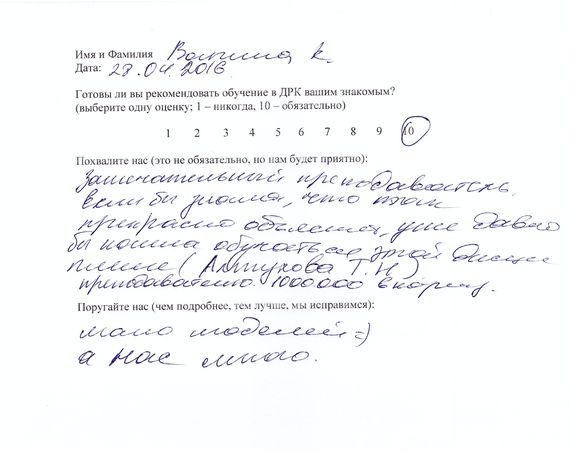 Имя и Фамилия Вольнина К.
Дата: 28.04.2016
Готовы ли вы рекомендовать обучение в ДРК вашим знакомым?
(выберите одну оценку; 1 – никогда, 10 – обязательно)
1 2 3 4 5 6 7 8 9 10
Похвалите нас (это не обязательно, но нам будет приятно):
Замечательный преподаватель,
если бы знала, что так
прекрасно объяснят, уже давно
бы пошла обучаться этой дисци
плине (Алтухова Т.Н)
преподавателю 1000000 в карму.
Поругайте нас (чем подробнее, тем лучше, мы исправимся):
мало моделей =)
а нас много.